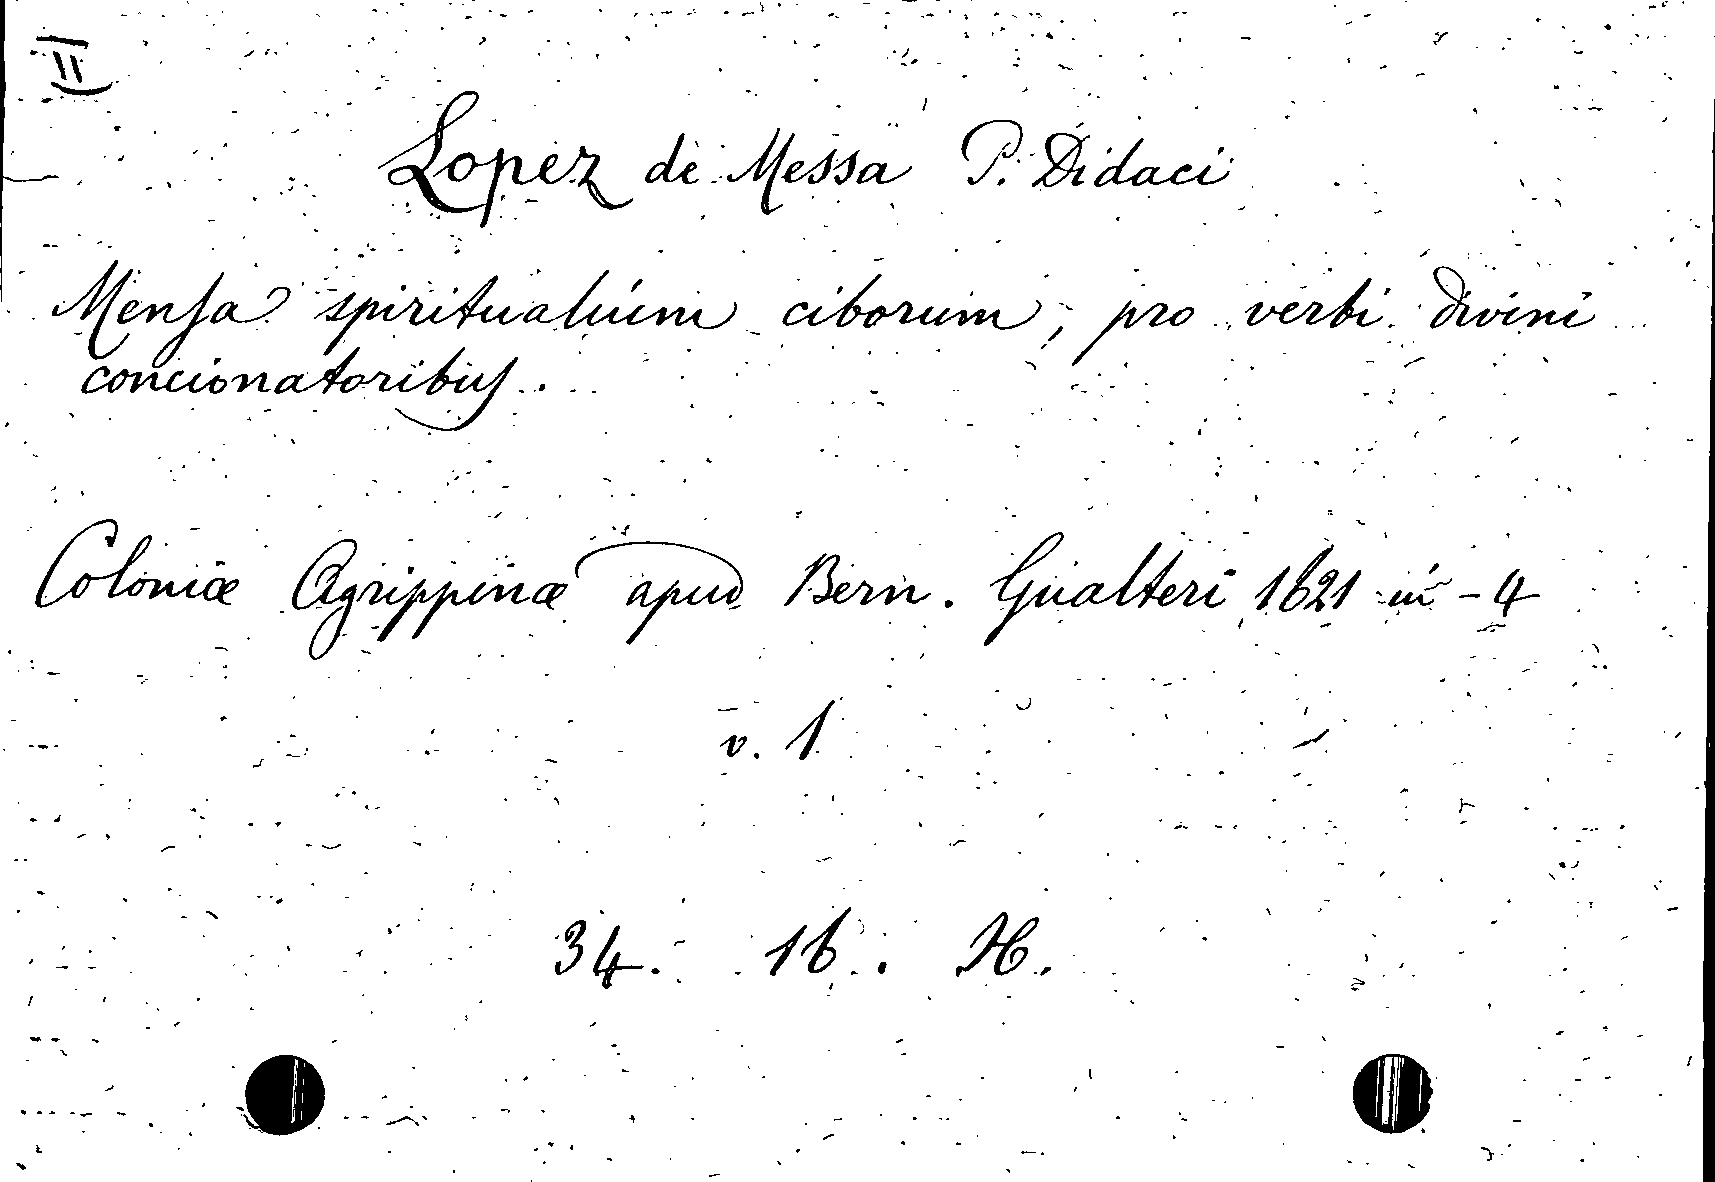 II
Lopez de Messa P. Didaci
Mensa spiritualium ciborum, pro verbi divini
concionatoribus.
Coloniæ Agrippinæ apud Bern. Gualteri 1621 in-4
v. 1
34. 16. H.